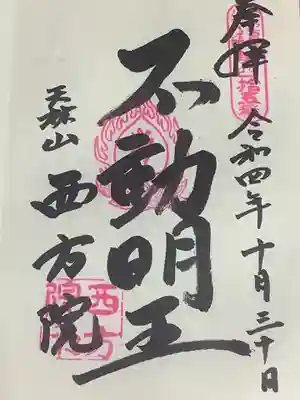 奉拝 令和四年十月三十日
不動明王
山 西方院
西方
院